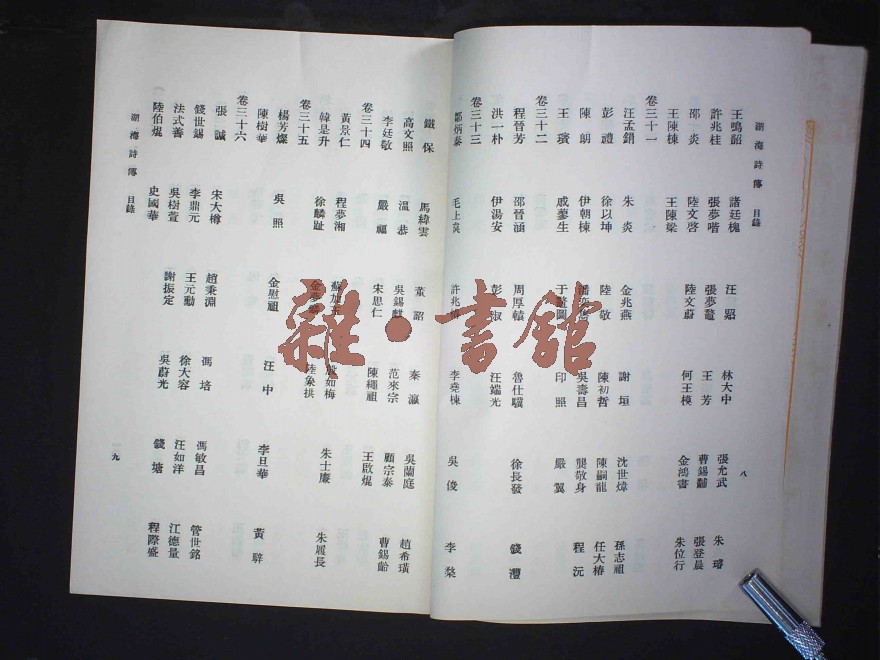 湖海詩傳 目錄 八
王鳴韶 諸廷槐 汪照 林大中 張允武 朱璿
許兆桂 張夢喈 張夢鼇 王芳 曹錫黼 張登晨
邵炎 陸文啓 陸文蔚 何王模 金鴻書 朱位行
王陳棟 王陳梁
卷三十一
汪孟鋗 朱炎 金兆燕 謝垣 沈世煒 孫志祖
彭禮 徐以坤 陸敬 陳初哲 陳嗣龍 任大椿
陳朗 伊朝棟 吳壽昌 龔敬身 程沅
王璸 戚蓼生 于鼇圖 印照 嚴翼
卷三十二
程晉芳 邵晉涵 周厚轅 魯仕驥 徐長發 錢灃
洪一朴 伊湯安 彭淑 汪端光
卷三十三
鄒炳泰 毛上炱 許兆椿 李堯棟 吳俊 李棨
鐵保 馬緯雲 董詔 秦瀛 吳蘭庭 趙希璜
高文照 溫恭 吳錫麒 范來宗 顧宗泰 曹錫齡
李廷敬 嚴福 宋思仁 陳繩祖 王啟焜
卷三十四
黃景仁 程夢湘 殷如梅 朱士廉 朱履長
韓是升 徐麟趾 陸象拱
卷三十五
楊芳燦 吳照 金慰祖 汪中 李旦華 黃騂
陳樹華
卷三十六
張誠 宋大樽 趙秉淵 馮培 馮敏昌 管世銘
錢世錫 李鼎元 王元勳 徐大容 汪如洋 江德量
法式善 吳樹萱 謝振定 吳蔚光 錢塘 程際盛
陸伯焜 史國華
湖海詩傳 目錄 一九
雜·書館